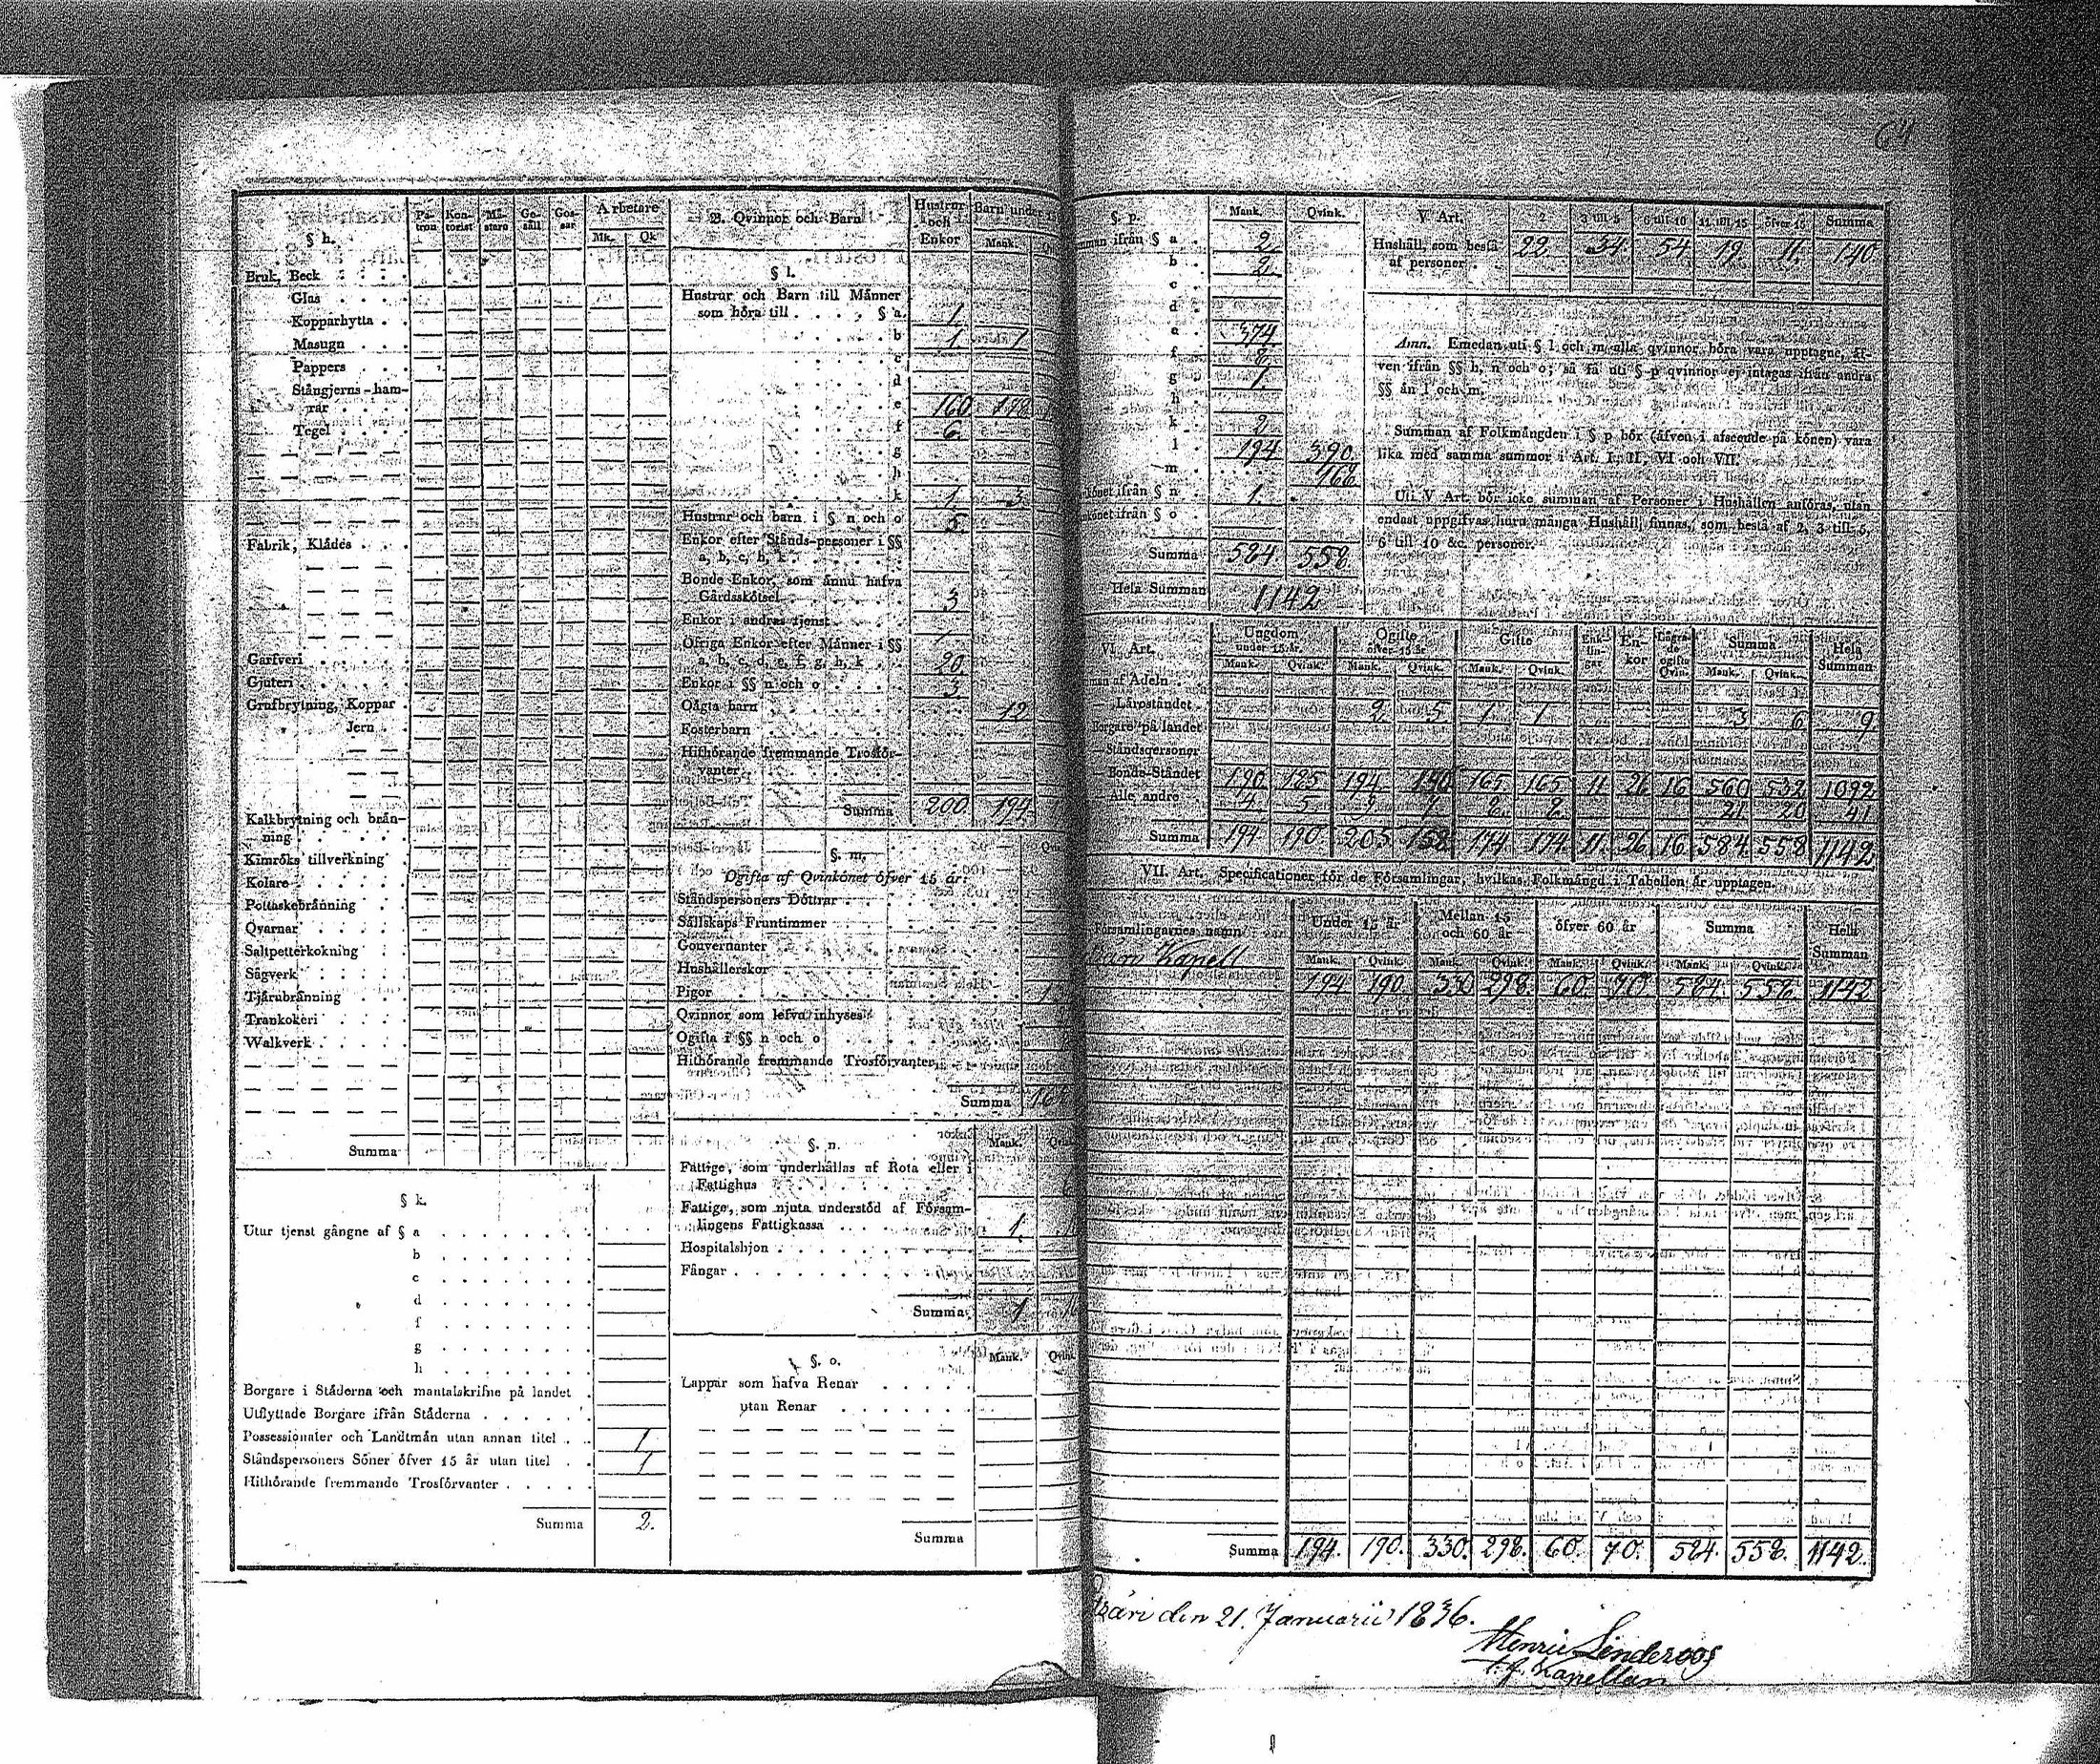 64
§ h.
Pa-tron Kon-torist Mä-stare Ge-säll Gos-sar Arbetare Mk. Qk
Bruk, Beck
Glas
Kopparhytta
Masugn
Pappers
Stångjerns-ham-
rar
Tegel
Fabrik, Klädes
Garfveri
Gjuteri
Grufbrytning, Koppar
Jern
Kalkbrytning och brän-
ning
Kimröks tillverkning
Kolare
Pottaskebränning
Qvarnar
Saltpetterkokning
Sågverk
Tjärubränning
Trankokeri
Walkverk
Summa
§ k.
Utur tjenst gångne af § a
b
c
d
f
g
h
Borgare i Städerna och mantalskrifne på landet
Utflyttade Borgare ifrån Städerna
Possessionater och Landtmän utan annan titel 1
Ståndspersoners Söner öfver 15 år utan titel 1
Hithörande fremmande Trosförvanter
Summa 2.
B. Qvinnor och Barn Hustrur och Enkor Barn under Mank.
§ l.
Hustrur och Barn till Männer
som höra till § a. 1
b 1 1
c
d
e 160
f 6
g
h
k 1 3
Hustrur och barn i § n och o 5.
Enkor efter Stånds-personer i §§
a, b, c, h, k
Bonde Enkor, som ännu hafva
Gårdsskötsel 3
Enkor i andras tjenst
Öfriga Enkor efter Männer i §§
a, b, c, d, e, f, g, h, k 20
Enkor i §§ n och o 3
Oägta barn 12
Fosterbarn
Hithörande fremmande Trosför-
vanter
Summa 200 194
§. m.
Ogifta af Qvinkönet öfver 15 år:
Ståndspersoners Döttrar
Sällskaps Fruntimmer
Gouvernanter
Hushållerskor
Pigor
Qvinnor som lefva inhyses
Ogifta i §§ n och o
Hithörande fremmande Trosförvanter
Summa
§. n. Mank.
Fattige, som underhållas af Rota eller i
Fattighus
Fattige, som njuta understöd af Försam-
lingens Fattigkassa 1.
Hospitalshjon
Fångar
Summa 1
§. o. Mank.
Lappar som hafva Renar
utan Renar
Summa
§. p. Mank. Qvink.
ifrån § a 2
b 2
c
d
e 374
f 8
g 1.
h
k 2
l 194 390
m 168
ifrån § n 1.
ifrån § o
Summa 584 558
Hela Summan 1142
V. Art. 2 3 till 5 6 till 10 11 till 15 öfver 15 Summa
Hushåll, som bestå
af personer 22. 34. 54 19. 11. 140
Anm. Emedan uti § l och m alla qvinnor böra vara upptagne, äf-
ven ifrån §§ h, n och o; så få uti § p qvinnor ej intagas ifrån andra
§§ än l och m.
Summan af Folkmängden i § p bör (äfven i afseende på könen) vara
lika med samma summor i Art. I, II, VI och VII.
Uti V Art. bör icke summan af Personer i Hushållen anföras, utan
endast uppgifvas huru många Hushåll finnas, som bestå af 2, 3 till 5,
6 till 10 &c. personer.
VI. Art. Ungdom under 15 år. Ogifte öfver 15 år Gifte Enk-lin-gar En-kor Lägra-de ogifte Qvin. Summa Hela Summan
Mank. Qvink. Mank. Qvink. Mank. Qvink. Mank. Qvink.
af Adeln
Läroståndet 2 5 1 1 3 6 9
Borgare på landet
Ståndspersoner
Bonde-Ståndet 190 185 194 140 165 165 11 26 16 560 532 1092
Alle andre 4 5 9 7 8 8 21 20 41
Summa 194 190. 205 158 174 174. 11. 26 16 584. 558 1142
VII. Art. Specificationer för de Församlingar, hvilkas Folkmängd i Tabellen är upptagen.
Församlingarnes namn Under 15 år Mellan 15 och 60 år öfver 60 år Summa Hela Summan
Mank. Qvink. Mank. Qvink. Mank. Qvink. Mank. Qvink.
Kapell 194 190 330 298 60. 70. 584. 558. 1142
Summa 194. 190. 330. 298. 60. 70. 584. 558. 1142.
den 21. Januarii 1836.
Henric Linderoos
t.f. Kapellan